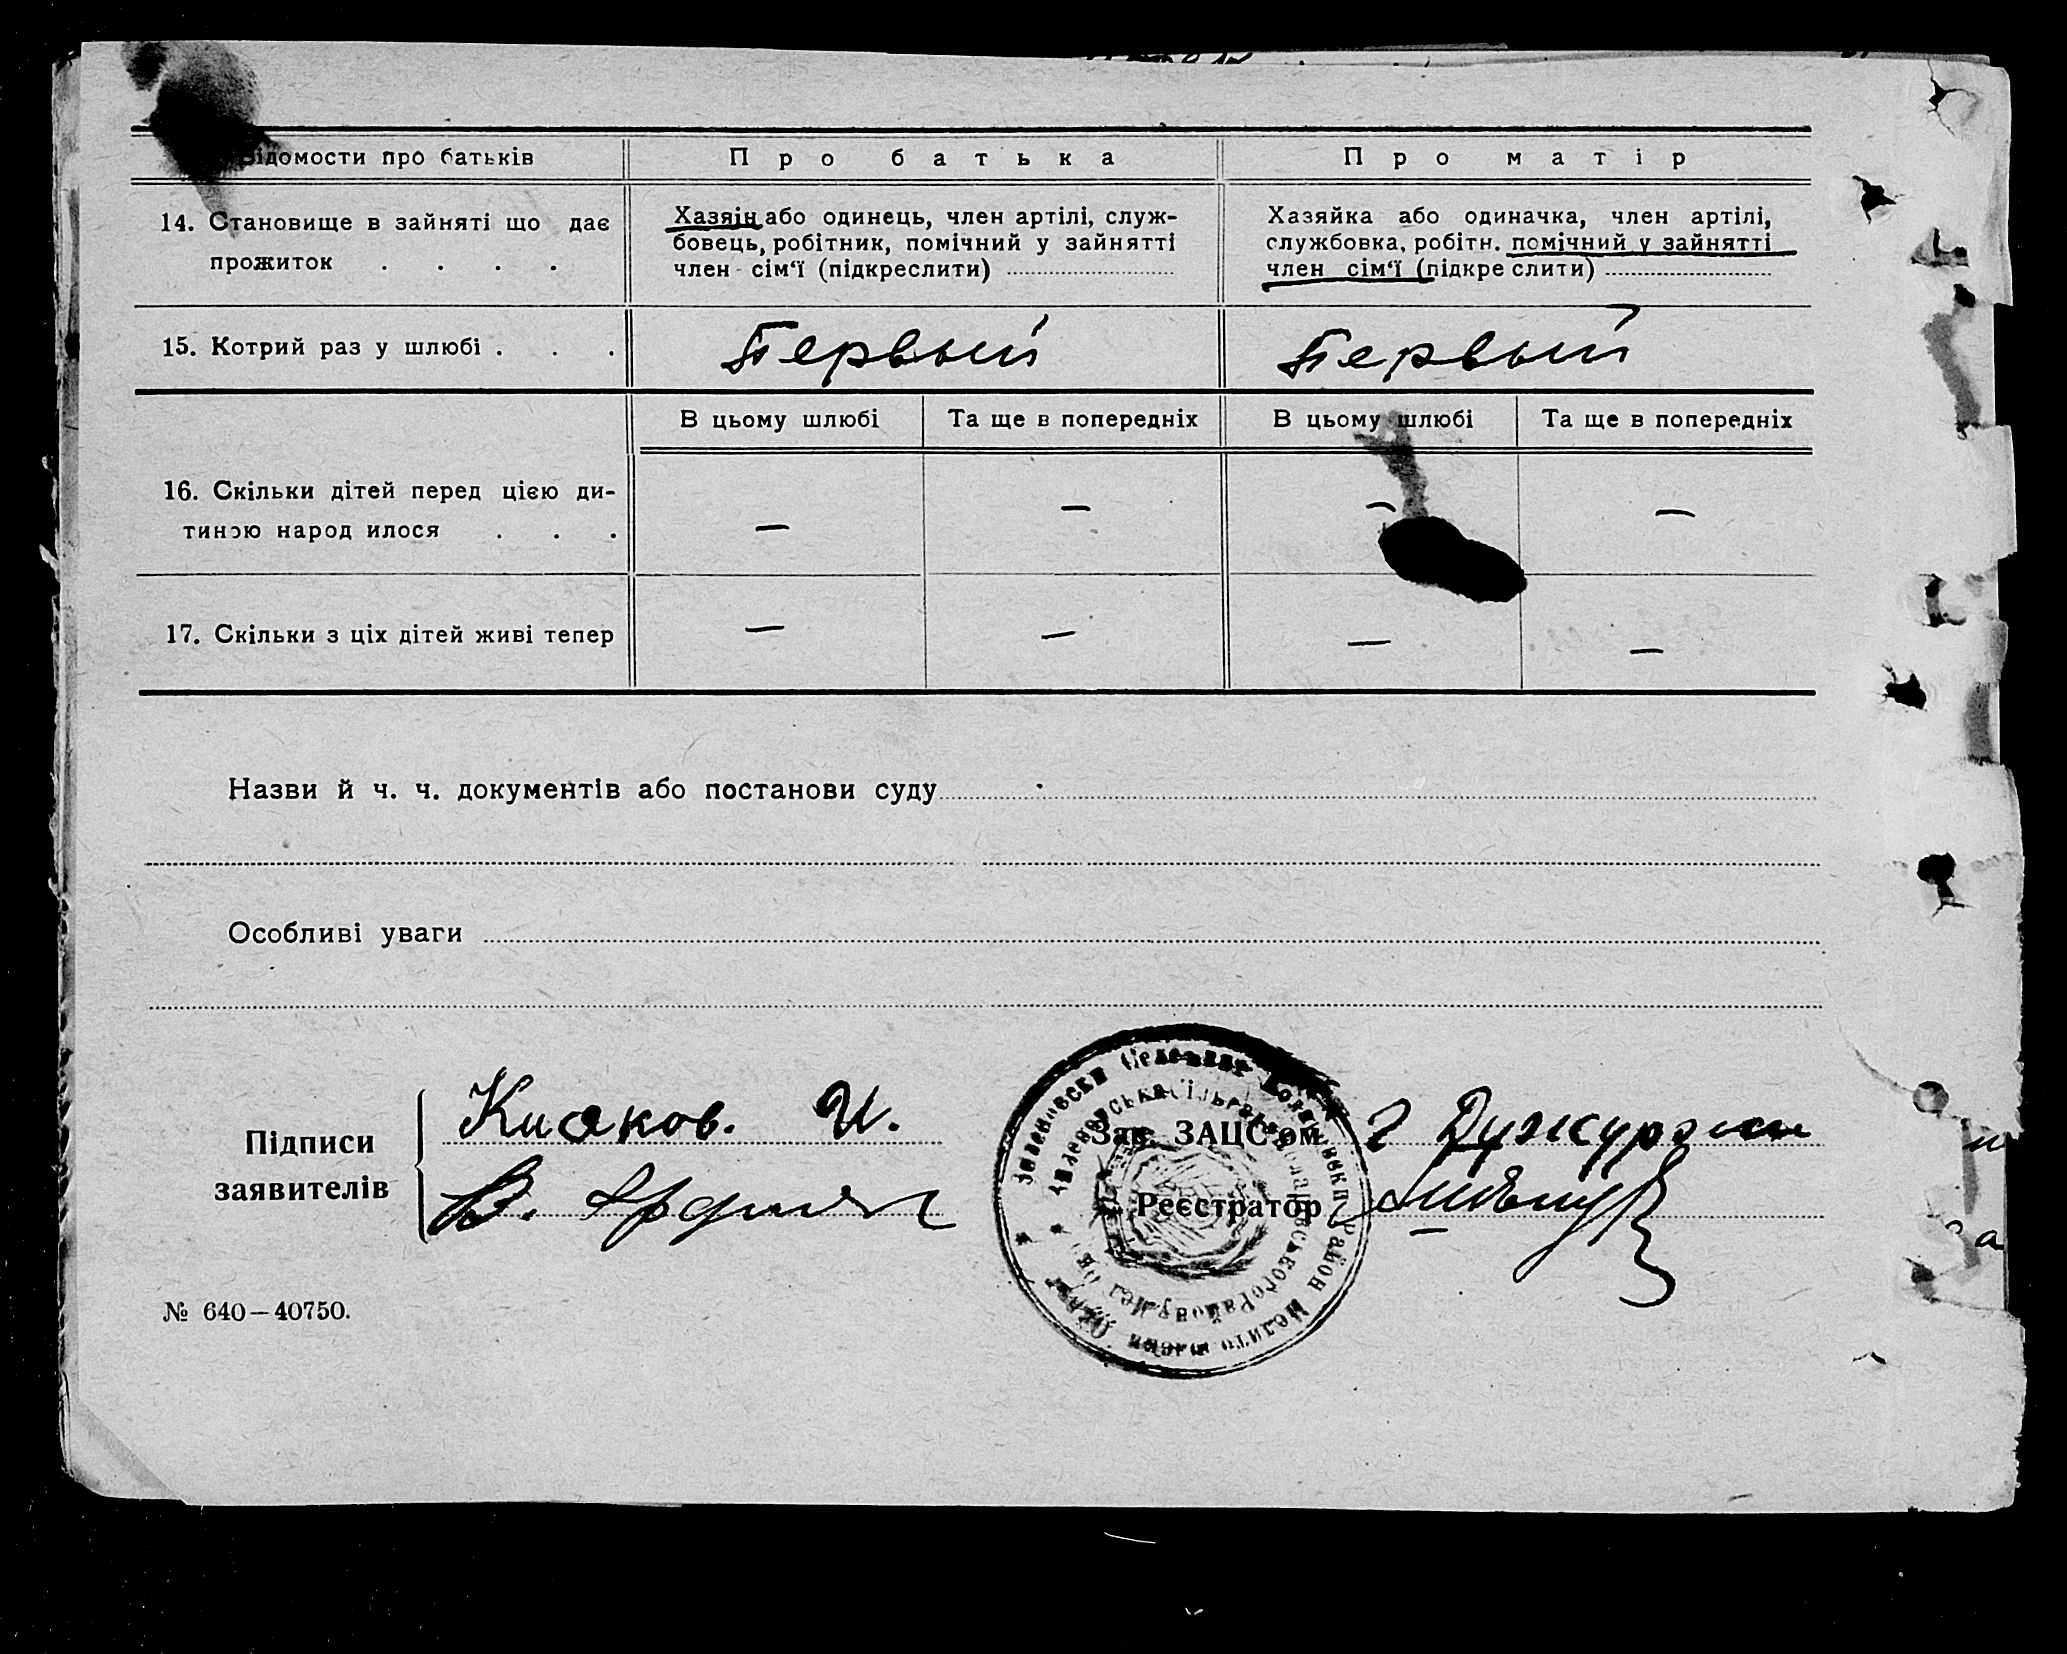 Відомости про батьків
Про батька
Про матір
14. Становище в зайняті що дає
прожиток . . . .
Хазяін або одинець, член артілі, служ-
бовець, робітник, помічний у зайнятті
член сім‘ї (підкреслити)
Хазяйка або одиначка, член артілі,
службовка, робітн. помічний у зайнятті
член сім‘ї (підкреслити)
15. Котрий раз у шлюбі . . .
Первый
Первый
В цьому шлюбі
Та ще в попередніх
В цьому шлюбі
Та ще в попередніх
16. Скільки дітей перед цією ди-
тиною народилося . . .
— — — —
17. Скільки з ціх дітей живі тепер
— — — —
Назви й ч. ч. документів або постанови суду
Особливі уваги
Підписи
заявителів
В.
Зав. ЗАЦС‘ом
Реєстратор
№ 640—40750.